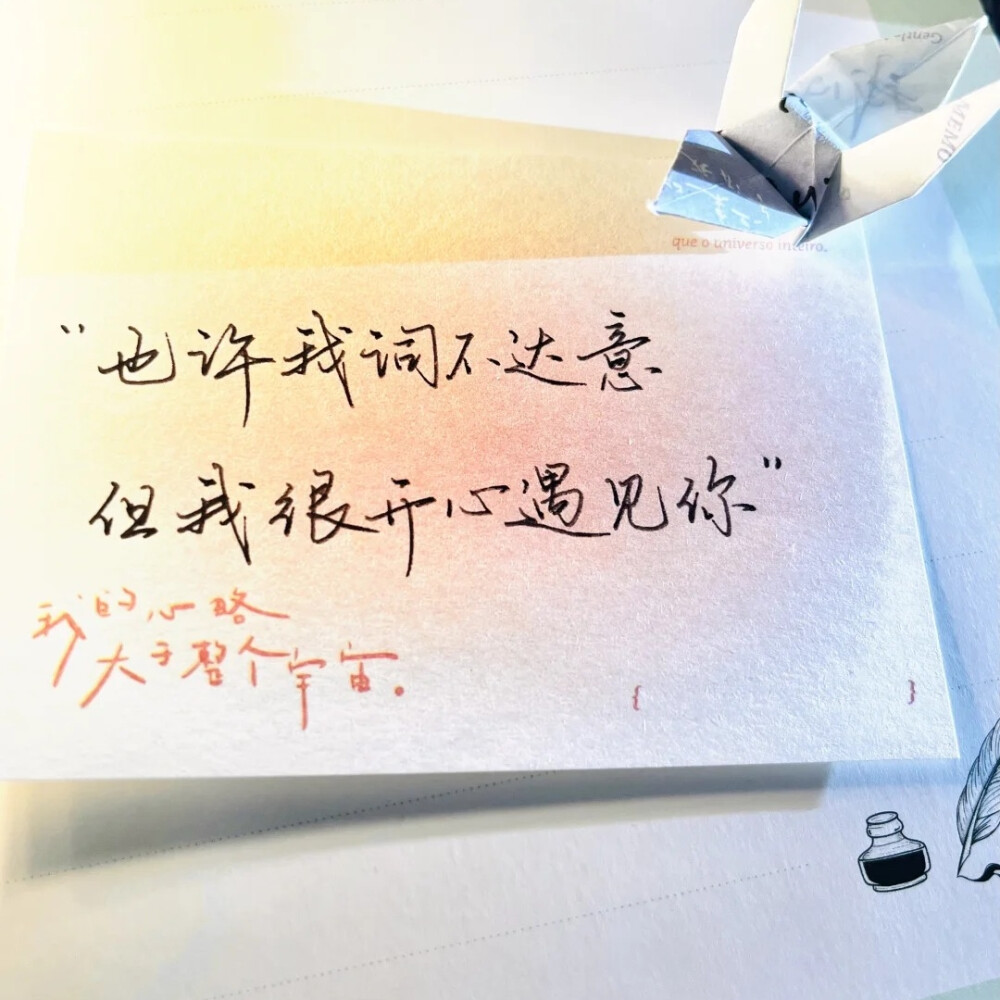 Gentl
MEMO
que o universo inteiro.
"也许我词不达意
但我很开心遇见你"
我的心略
大于整个宇宙。
{ }